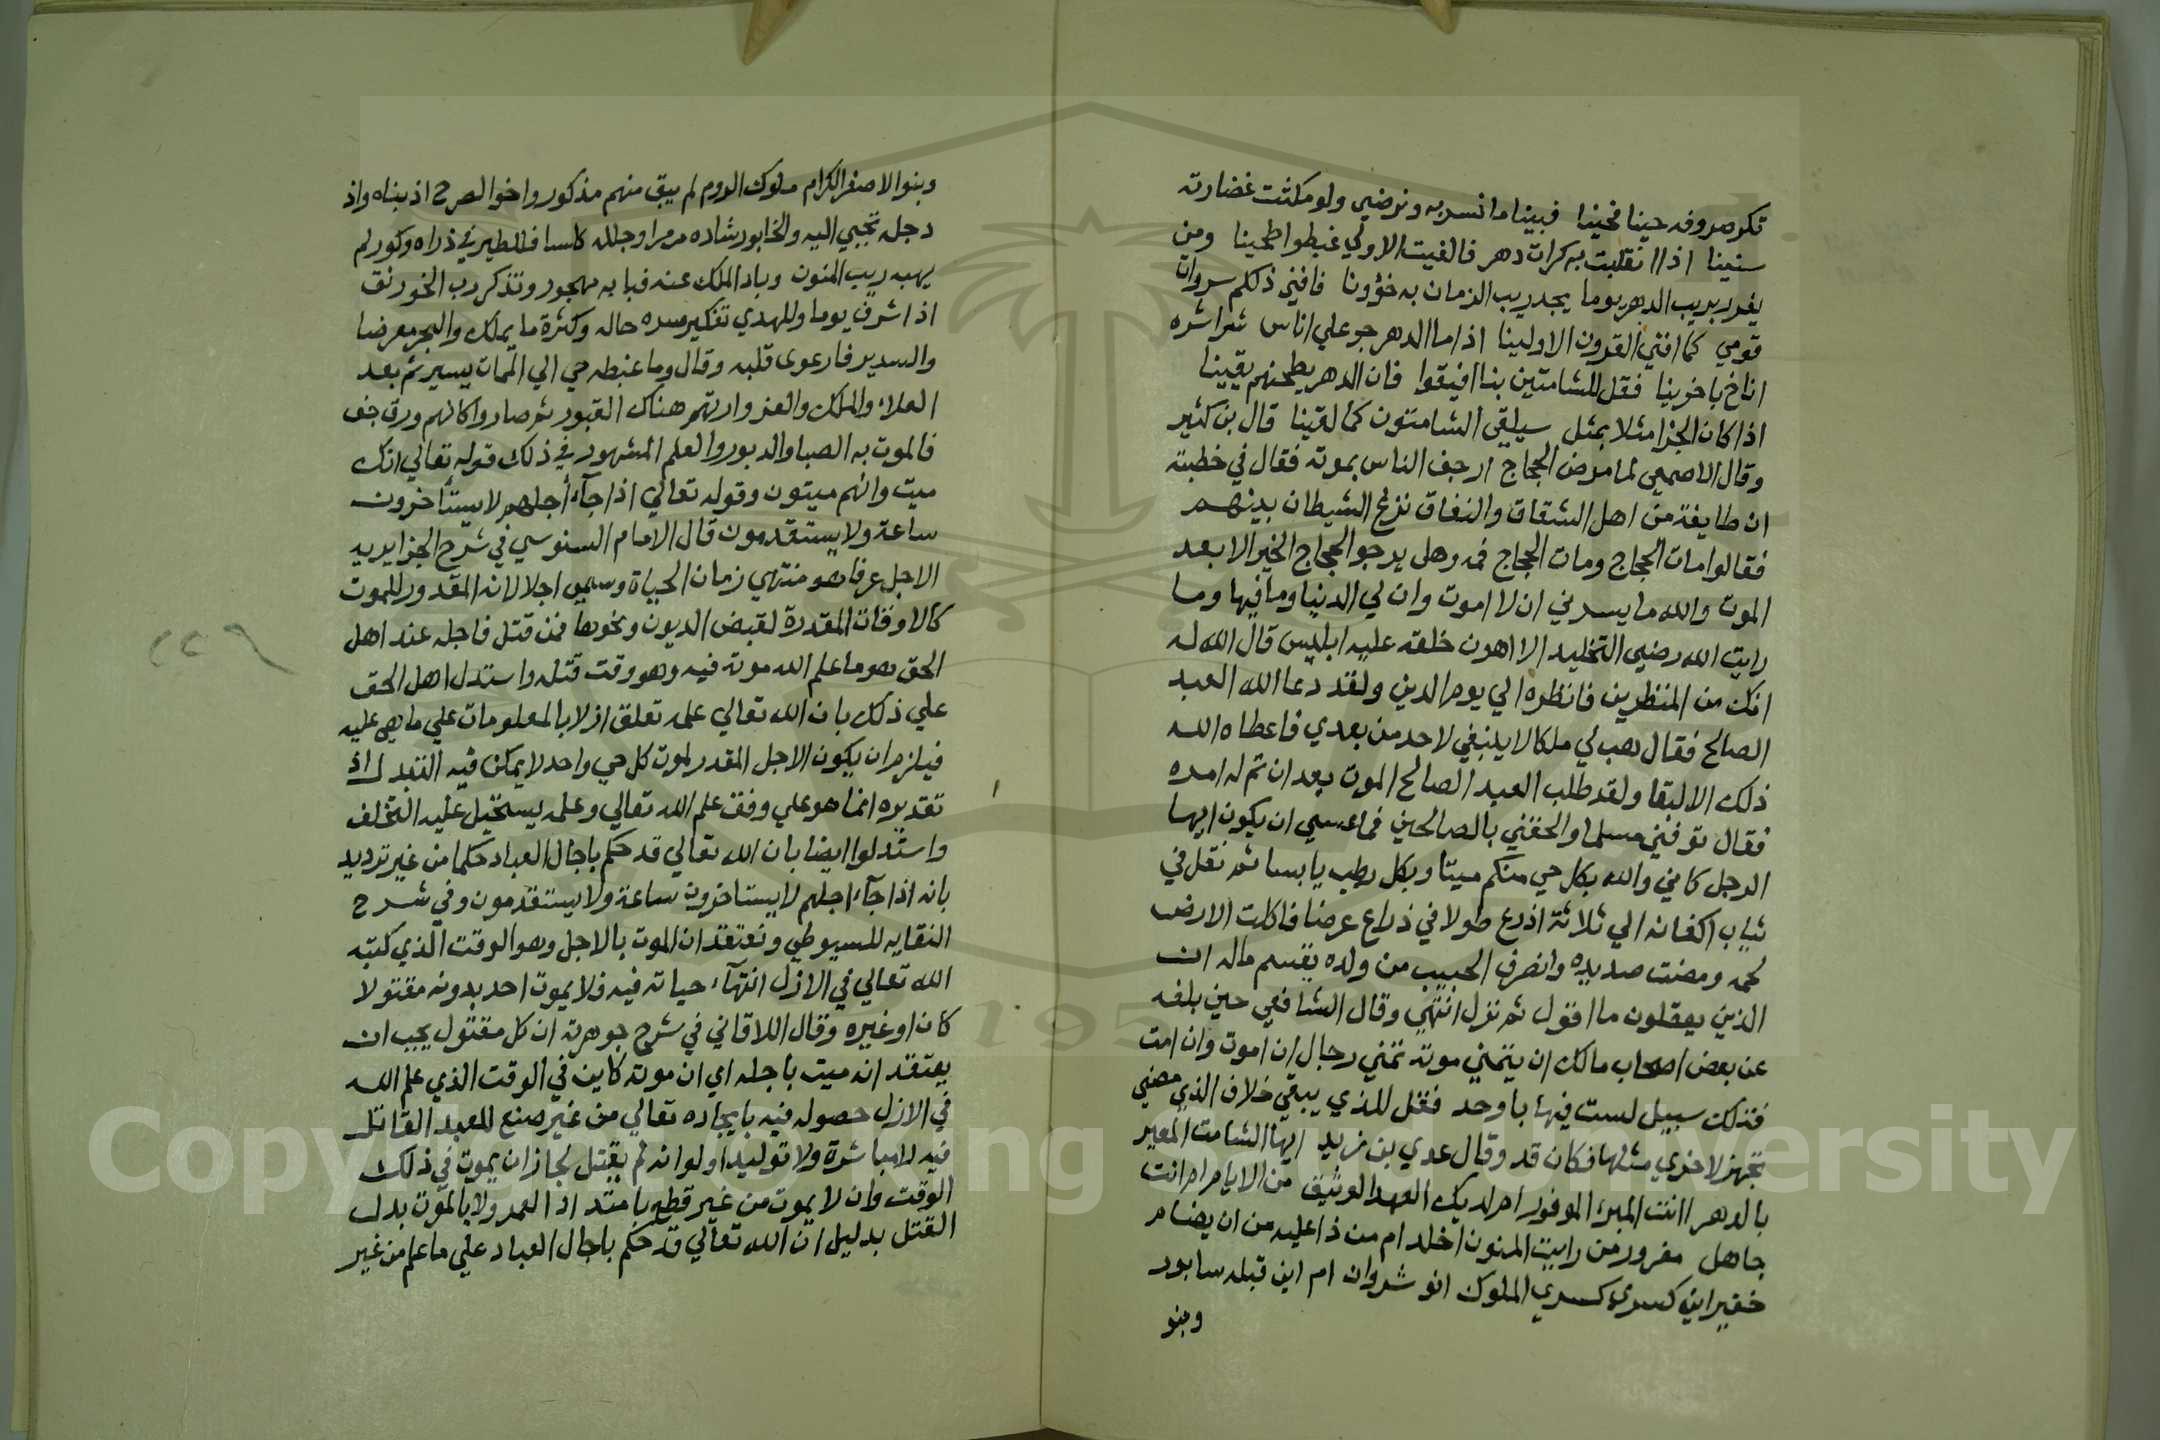 تكر صروفه حينا فحينا فبينا ما نسر به ونرضي ولو مكثت غضارته
سنينا اذا انقلبت به كرات دهر فالفيت الاولي غبطوا طحينا ومن
يغرر بريب الدهر يوما يجد ريب الزمان به خؤونا فافني ذلكم سروات
قومي كما افني القرون الاولينا اذا ما الدهر جر علي اناس شراشره
اناخ باخرينا فقل للشامتين بنا افيقوا فان الدهر يطحنهم يقينا
اذا كان الجزا مثلا بمثل سيلقي الشامتون كما لقينا قال بن كثير
وقال الاصمعي لما مرض الحجاج ارجف الناس بموته فقال في خطبته
ان طايفة من اهل الشقاق والنفاق نزغ الشيطان بينهم
فقالوا مات الحجاج ومات الحجاج فمه وهل يرجو الحجاج الخير الا بعد
الموت والله ما يسرني ان لا اموت وان لي الدنيا وما فيها وما
رايت الله رضي التخليد الا اهون خلقه عليه ابليس قال الله له
انك من المنظرين فانظره الي يوم الدين ولقد دعا الله العبد
الصالح فقال هب لي ملكا لا ينبغي لاحد من بعدي فاعطاه الله
ذلك الا البقا ولقد طلب العبد الصالح الموت بعد ان تم له امره
فقال توفني مسلما والحقني بالصالحين فما عسي ان يكون ايها
الرجل كاني والله بكل حي منكم ميتا وبكل رطب يابسا ثم نقل في
ثياب اكفانه الي ثلاثة اذرع طولا في ذراع عرضا فاكلت الارض
لحمه ومصت صديده وانصرف الحبيب من ولده يقسم ماله ان
الذين يعقلون ما اقول ثم نزل انتهي وقال الشافعي حين بلغه
عن بعض اصحاب مالك ان يتمني موته تمني رجال ان اموت وان امت
فتلك سبيل لست فيها باوحد فقل للذي يبقي خلاف الذي مضي
تجهز لاخري مثلها فكان قد وقال عدي بن زيد ايها الشامت المعير
بالدهر اانت المبرء الموفور ام لديك العهد الوثيق من الايام ام انت
جاهل مغرور من رايت المنون اخلد ام من ذا عليه من ان يضام
خفير اين كسري كسري الملوك انو شروان ام اين قبله سابور
وبنو
وبنوا الاصفر الكرام ملوك الروم لم يبق منهم مذكور واخوا لصرح اذ بناه واذ
دجلة تجبي اليه والخابور شاده مرمرا وجلله كلسا فللطير في ذراه وكور لم
يهبه ريب المنون وباد الملك عنه فبابه مهجور وتذكر رب الخورنق
اذ اشرف يوما وللهدي تفكير سره حاله وكثرة ما يملك والبحر معرضا
والسدير فارعوى قلبه وقال وما غبطه حي الي الممات يسير ثم بعد
العلاء والملك والعز وارتهم هناك القبور ثم صاروا كانهم ورق جف
فالموت به الصبا والدبور والعلم المشهور في ذلك قوله تعالي انك
ميت وانهم ميتون وقوله تعالي اذا جآء أجلهم لا يستأخرون
ساعة ولا يستقدمون قال الامام السنوسي في شرح الجزايريه
الاجل عرفا هو منتهي زمان الحياة وسمي اجلا لانه المقدور للموت
كالاوقات المقدرة لقبض الديون ونحوها فمن قتل فاجله عند اهل
الحق هو ما علم الله موته فيه وهو وقت قتله واستدل اهل الحق
علي ذلك بان الله تعالي علمه تعلق ازلا بالمعلومات علي ما هي عليه
فيلزم ان يكون الاجل المقدر لموت كل حي واحد لا يمكن فيه التبدل اذ
تقديره انما هو علي وفق علم الله تعالي وعلمه يستحيل عليه التخلف
واستدلوا ايضا بان الله تعالي قد حكم باجال العباد حكما من غير ترديد
بانه اذا جآء اجلهم لا يستاخرون ساعة ولا يستقدمون وفي شرح
النقايه للسيوطي ونعتقد ان الموت بالاجل وهو الوقت الذي كتبه
الله تعالي في الازل انتهآء حياته فيه فلا يموت احد بدونه مقتولا
كان او غيره وقال اللاقاني في شرح جوهرته ان كل مقتول يجب ان
يعتقد انه ميت بأجله اي ان موته كاين في الوقت الذي علم الله
في الازل حصوله فيه بايجاده تعالي من غير صنع للعبد القاتل
فيه لا مباشرة ولا توليدا ولو انه لم يقتل لجاز ان يموت في ذلك
الوقت وان لا يموت من غير قطع بامتداد العمر ولا بالموت بدل
القتل بدليل ان الله تعالي قد حكم باجال العباد علي ما علم من غير
Copy King Saud University
195